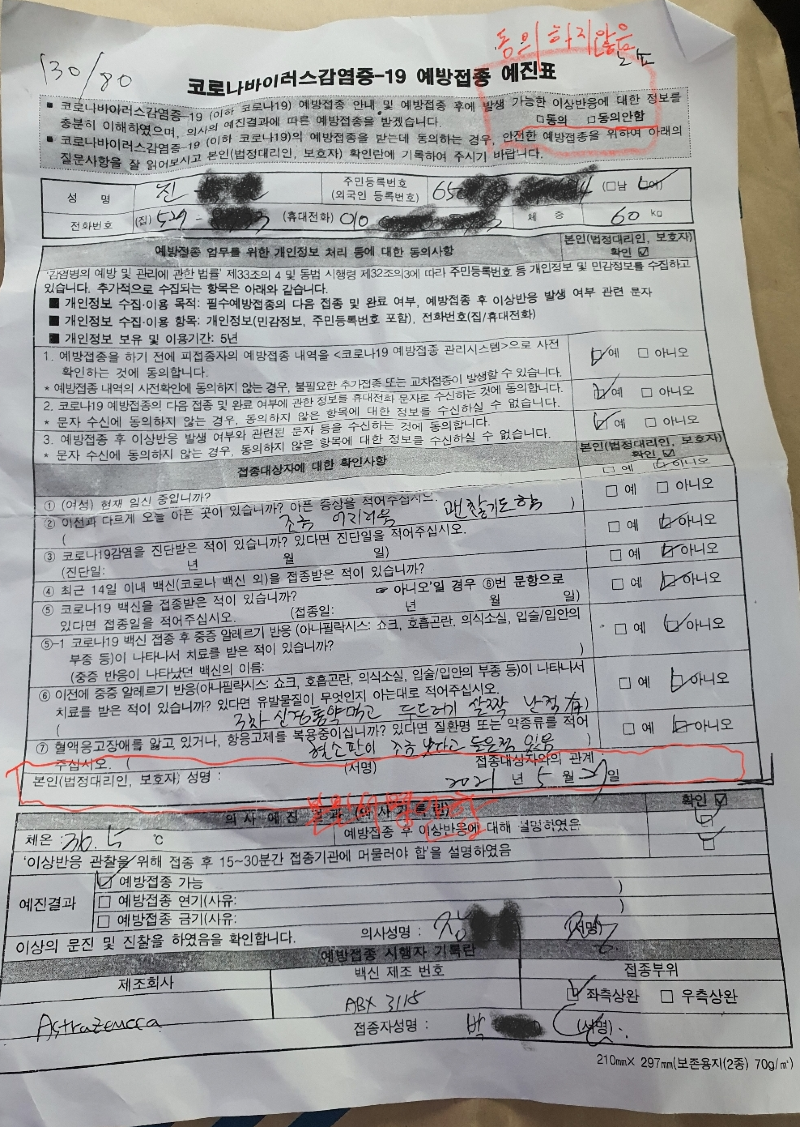 동의 하지않음
130/80
코로나바이러스감염증-19 예방접종 예진표
■ 코로나바이러스감염증-19 (이하 코로나19) 예방접종 안내 및 예방접종 후에 발생 가능한 이상반응에 대한 정보를
충분히 이해하였으며, 의사의 예진결과에 따른 예방접종을 받겠습니다. □동의 □동의안함
■ 코로나바이러스감염증-19 (이하 코로나19)의 예방접종을 받는데 동의하는 경우, 안전한 예방접종을 위하여 아래의
질문사항을 잘 읽어보시고 본인(법정대리인, 보호자) 확인란에 기록하여 주시기 바랍니다.
성 명 진 주민등록번호 65 (□남
(외국인 등록번호)
전화번호 (집) 529 - (휴대전화) 010 체 중 60 kg
예방접종 업무를 위한 개인정보 처리 등에 대한 동의사항 본인(법정대리인, 보호자)
확인 ☑
'감염병의 예방 및 관리에 관한 법률' 제33조의 4 및 동법 시행령 제32조의3에 따라 주민등록번호 등 개인정보 및 민감정보를 수집하고
있습니다. 추가적으로 수집되는 항목은 아래와 같습니다.
■ 개인정보 수집·이용 목적: 필수예방접종의 다음 접종 및 완료 여부, 예방접종 후 이상반응 발생 여부 관련 문자
■ 개인정보 수집·이용 항목: 개인정보(민감정보, 주민등록번호 포함), 전화번호(집/휴대전화)
■ 개인정보 보유 및 이용기간: 5년
1. 예방접종을 하기 전에 피접종자의 예방접종 내역을 <코로나19 예방접종 관리시스템>으로 사전
확인하는 것에 동의합니다. ☑예 □ 아니오
* 예방접종 내역의 사전확인에 동의하지 않는 경우, 불필요한 추가접종 또는 교차접종이 발생할 수 있습니다.
2. 코로나19 예방접종의 다음 접종 및 완료 여부에 관한 정보를 휴대전화 문자로 수신하는 것에 동의합니다. ☑예 □ 아니오
* 문자 수신에 동의하지 않는 경우, 동의하지 않은 항목에 대한 정보를 수신하실 수 없습니다.
3. 예방접종 후 이상반응 발생 여부와 관련된 문자 등을 수신하는 것에 동의합니다. ☑예 □ 아니오
* 문자 수신에 동의하지 않는 경우, 동의하지 않은 항목에 대한 정보를 수신하실 수 없습니다.
접종대상자에 대한 확인사항 본인(법정대리인, 보호자)
확인 ☑
① (여성) 현재 임신 중입니까? □ 예 ☑아니오
② 이전과 다르게 오늘 아픈 곳이 있습니까? 아픈 증상을 적어주십시오. □ 예 □ 아니오
( 조금 어지러움 괜찮기도함 )
③ 코로나19감염을 진단받은 적이 있습니까? 있다면 진단일을 적어주십시오. □ 예 ☑아니오
(진단일: 년 월 일)
④ 최근 14일 이내 백신(코로나 백신 외)을 접종받은 적이 있습니까? □ 예 ☑아니오
⑤ 코로나19 백신을 접종받은 적이 있습니까? ☞ 아니오'일 경우 ⑥번 문항으로 □ 예 ☑아니오
있다면 접종일을 적어주십시오. (접종일: 년 월 일)
⑤-1 코로나19 백신 접종 후 중증 알레르기 반응 (아나필락시스: 쇼크, 호흡곤란, 의식소실, 입술/입안의
부종 등)이 나타나서 치료를 받은 적이 있습니까? □ 예 ☑아니오
(중증 반응이 나타났던 백신의 이름: )
⑥ 이전에 중증 알레르기 반응(아나필락시스: 쇼크, 호흡곤란, 의식소실, 입술/입안의 부종 등)이 나타나서
치료를 받은 적이 있습니까? 있다면 유발물질이 무엇인지 아는대로 적어주십시오. □ 예 ☑아니오
( 먹고 두드러기 살짝 난적 有 )
⑦ 혈액응고장애를 앓고 있거나, 항응고제를 복용중이십니까? 있다면 질환명 또는 약종류를 적어 □ 예 ☑아니오
주십시오. ( 혈소판이 조금 낮다고 들은적 있음
본인(법정대리인, 보호자) 성명 : (서명) 접종대상자와의 관계 :
2021 년 5 월 일
의사 예진 결과 (의사 기록란) 확인 ☑
체온 : 36.5 ℃ 예방접종 후 이상반응에 대해 설명하였음
'이상반응 관찰을 위해 접종 후 15~30분간 접종기관에 머물러야 함'을 설명하였음
예진결과 ☑ 예방접종 가능
□ 예방접종 연기(사유: )
□ 예방접종 금기(사유: )
이상의 문진 및 진찰을 하였음을 확인합니다. 의사성명 : (서명)
예방접종 시행자 기록란
제조회사 백신 제조 번호 접종부위
Astrazeneca ABX 3115 ☑ 좌측상완 □ 우측상완
접종자성명 : 박 (서명)
210mm× 297mm(보존용지(2종) 70g/㎡)